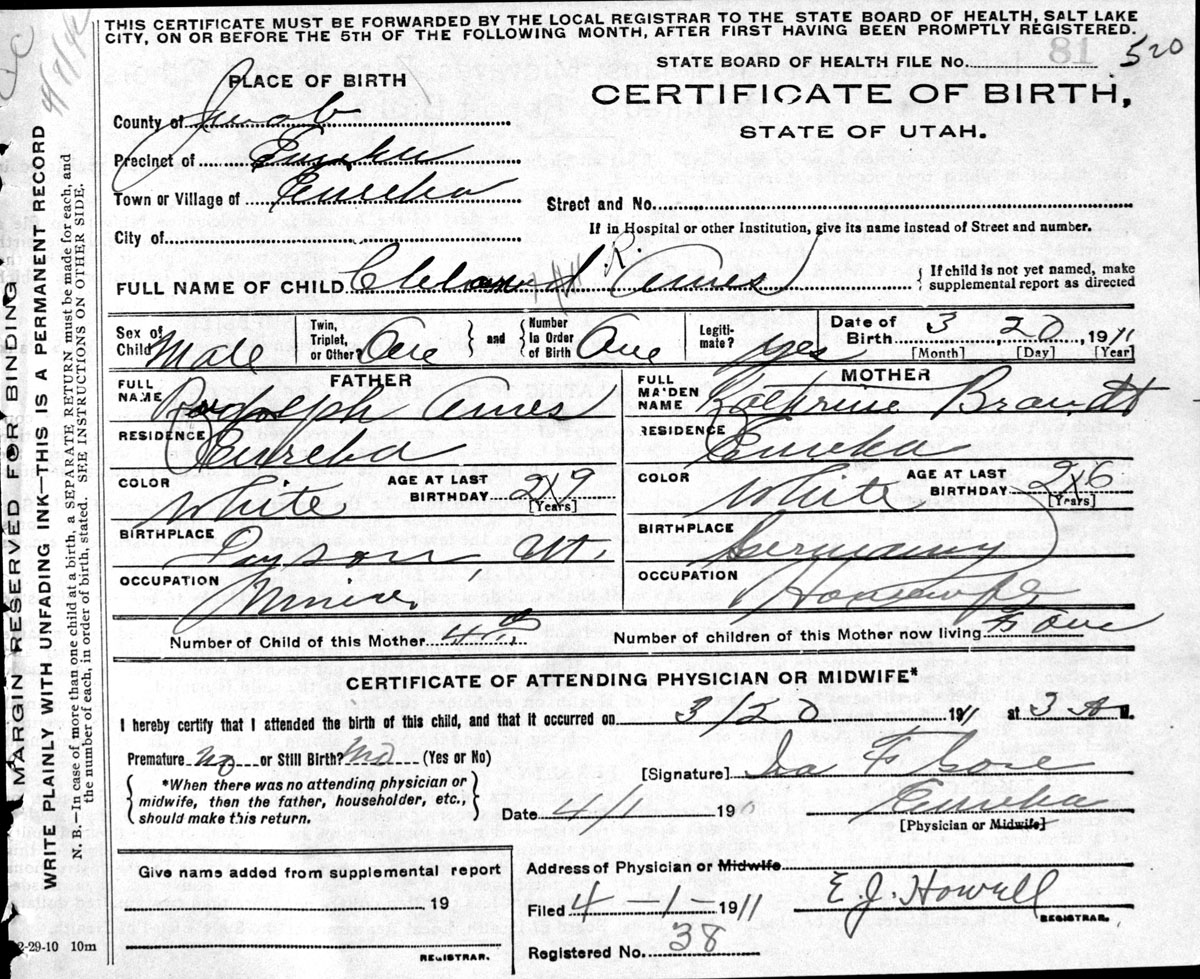 THIS CERTIFICATE MUST BE FORWARDED BY THE LOCAL REGISTRAR TO THE STATE BOARD OF HEALTH, SALT LAKE
CITY, ON OR BEFORE THE 5TH OF THE FOLLOWING MONTH, AFTER FIRST HAVING BEEN PROMPTLY REGISTERED.
STATE BOARD OF HEALTH FILE No. 81 520
PLACE OF BIRTH
CERTIFICATE OF BIRTH,
STATE OF UTAH.
County of Juab
Precinct of Eureka
Town or Village of Eureka
Street and No.
City of
If in Hospital or other Institution, give its name instead of Street and number.
R.
FULL NAME OF CHILD Ames
If child is not yet named, make
supplemental report as directed
Sex of Child Male
Twin, Triplet, or Other? One
and
Number in Order of Birth One
Legiti-mate? yes
Date of Birth 3 20 1911
[Month] [Day] [Year]
FATHER
MOTHER
FULL NAME Rudolph Ames
FULL MAIDEN NAME Kathrine Brandt
RESIDENCE Eureka
RESIDENCE Eureka
COLOR White
AGE AT LAST BIRTHDAY 29
[Years]
COLOR White
AGE AT LAST BIRTHDAY 26
[Years]
BIRTHPLACE Payson, Ut.
BIRTHPLACE Germany
OCCUPATION Miner
OCCUPATION Housewife
Number of Child of this Mother 4th
Number of children of this Mother now living Four
CERTIFICATE OF ATTENDING PHYSICIAN OR MIDWIFE*
I hereby certify that I attended the birth of this child, and that it occurred on 3/20 1911 at 3 A M.
Premature no or Still Birth? no (Yes or No)
*When there was no attending physician or
midwife, then the father, householder, etc.,
should make this return.
[Signature]
Date 4/1 190
Eureka
[Physician or Midwife]
Give name added from supplemental report
19
REGISTRAR.
Address of Physician or Midwife
Filed 4-1-1911
E. J. Howell
REGISTRAR.
Registered No. 38
2-29-10 10m
MARGIN RESERVED FOR BINDING
WRITE PLAINLY WITH UNFADING INK—THIS IS A PERMANENT RECORD
N. B.—In case of more than one child at a birth, a SEPARATE RETURN must be made for each, and
the number of each, in order of birth, stated. SEE INSTRUCTIONS ON OTHER SIDE.